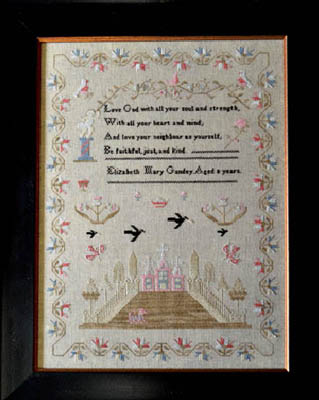 Love God with all your soul and strength,
With all your heart and mind;
And love your neighbour as yourself,
Be faithful, just, and kind.
Elizabeth Mary Gandey, Aged 8 years.